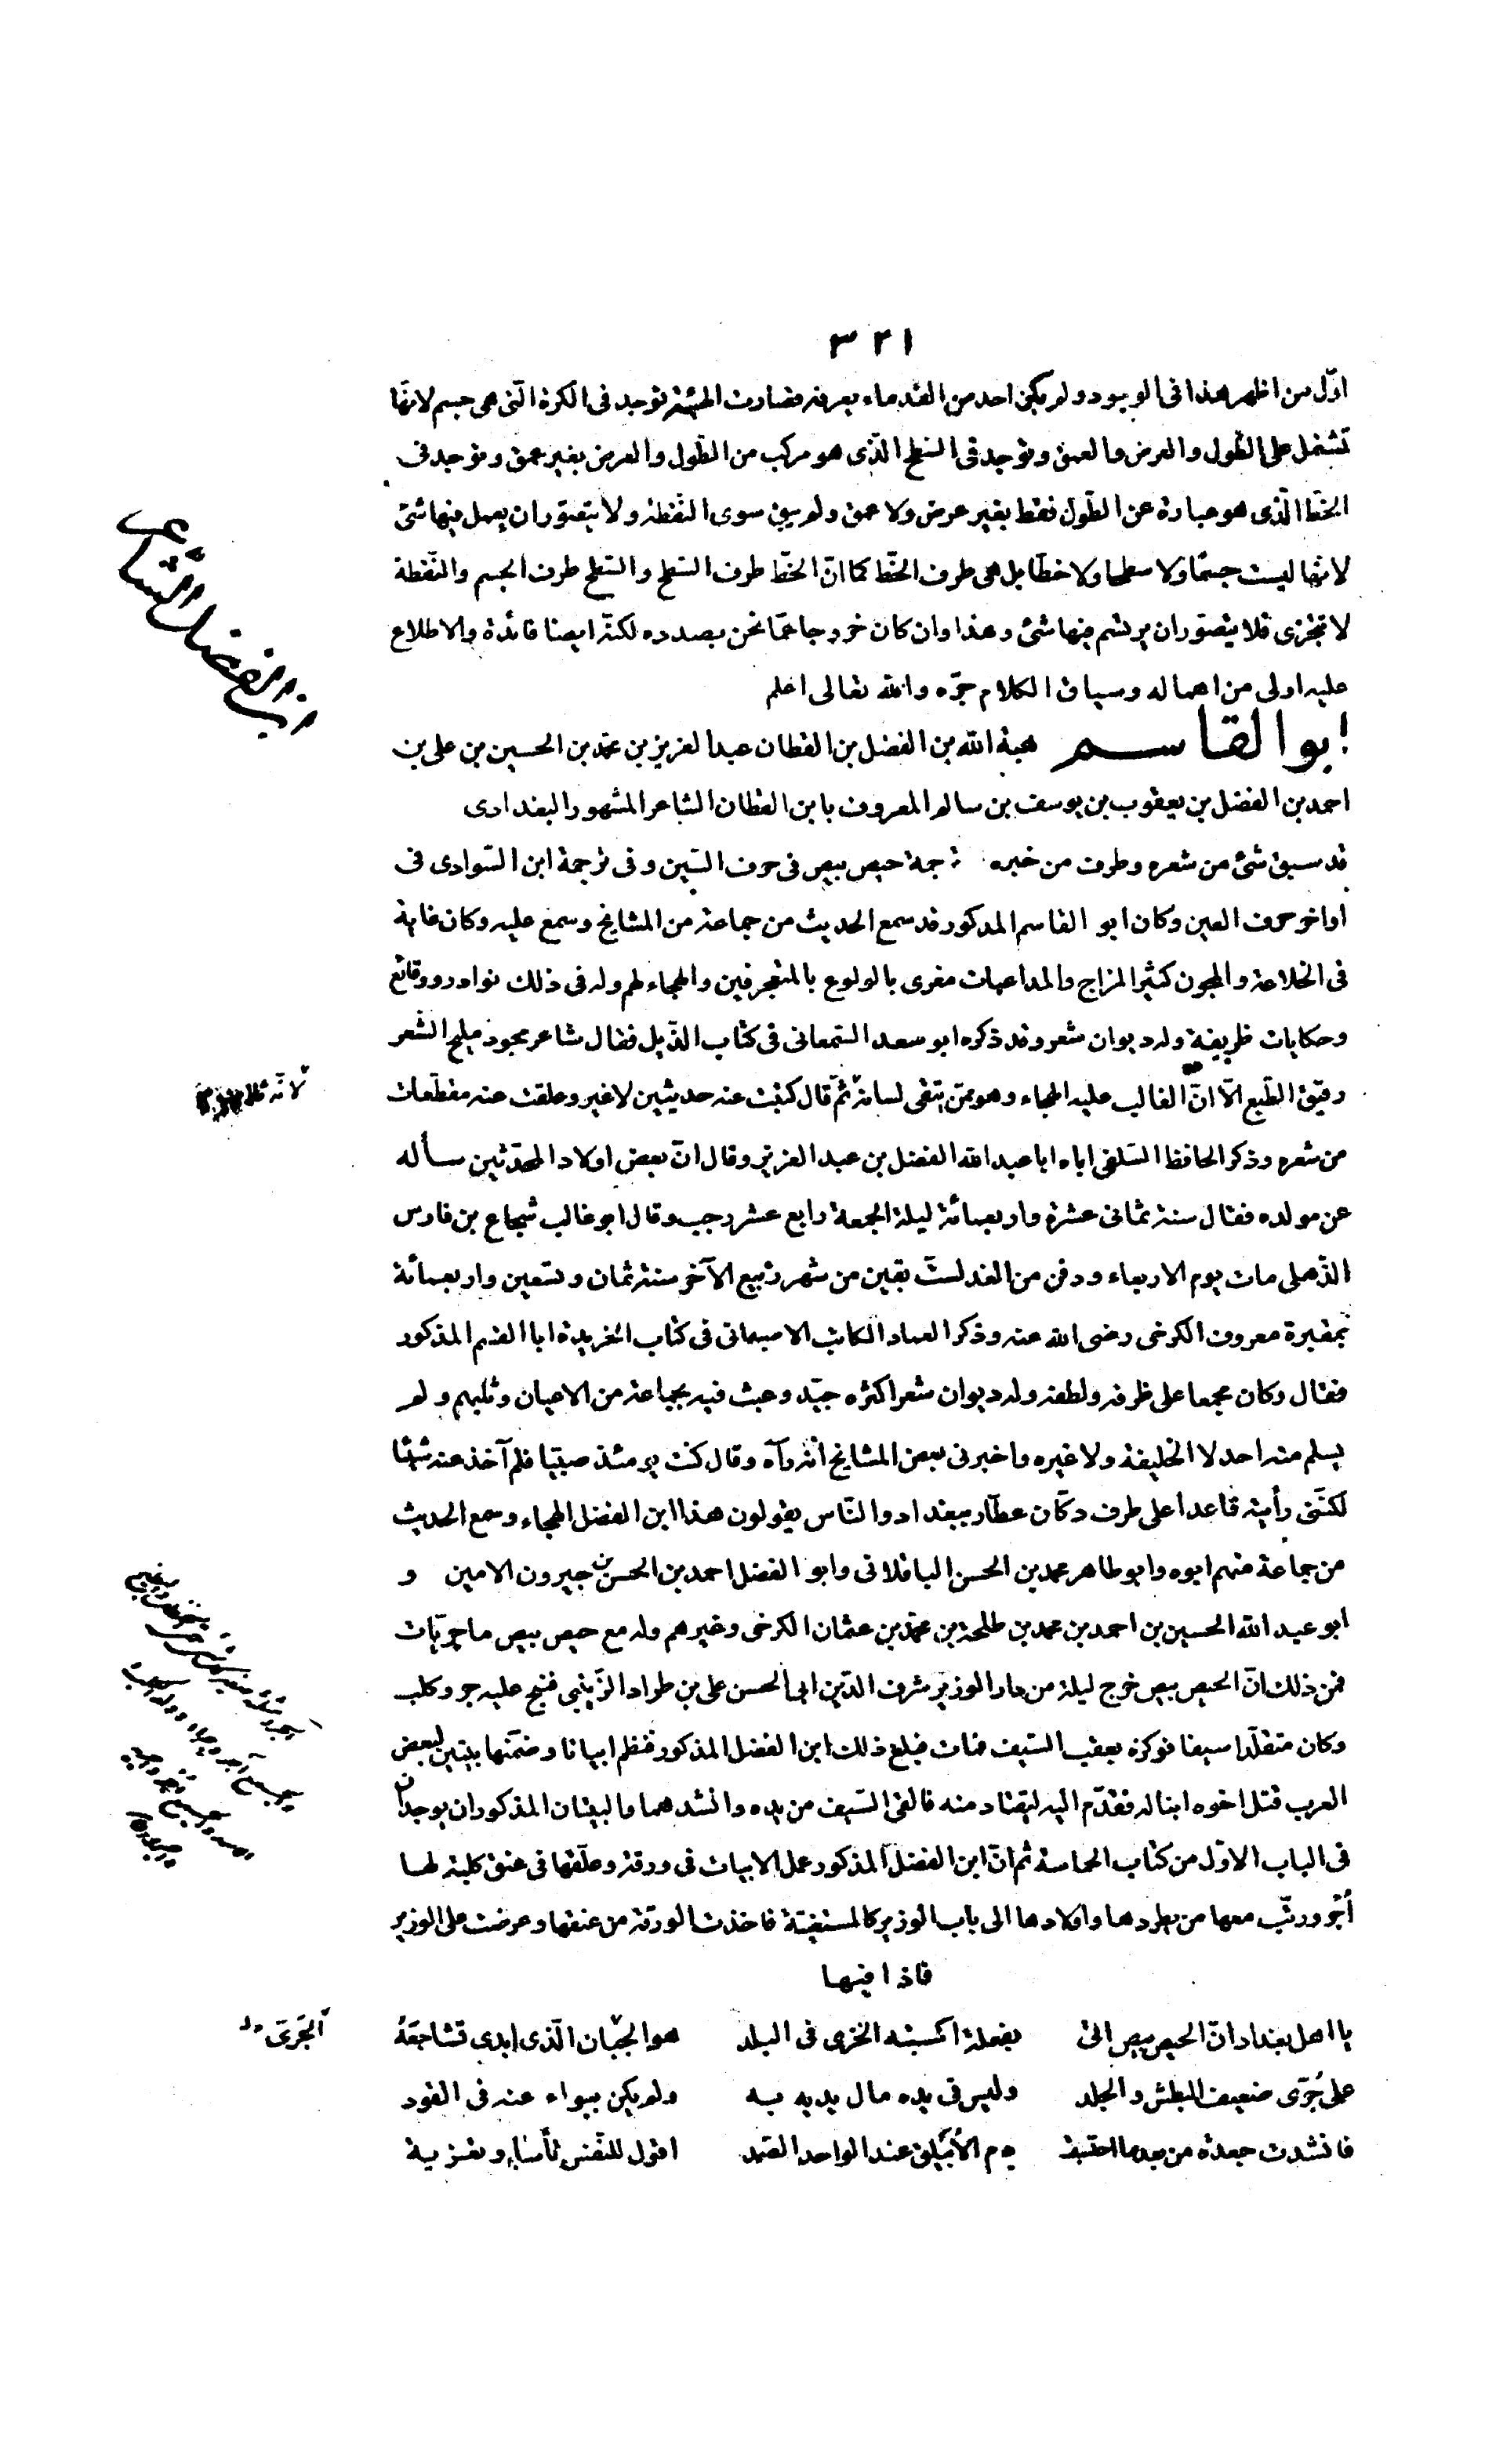 ٣٢١
اوّل من اظهر هذا فى الوجود ولم يكن احد من القدماء يعرفه فصارت الهيئة توجد فى الكرة الّتى هى جسم لانّها
تشتمل على الطّول والعرض والعمق وتوجد فى السّطح الّذى هو مركب من الطّول والعرض بغير عمق وتوجد فى
الخطّ الّذى هو عبارة عن الطّول فقط بغير عرض ولا عمق ولم يبق سوى النّقطة ولا يتصوّر ان يعمل فيها شئ
لانّها ليست جسمًا ولا سطحا ولا خطّا بل هى طرف الخطّ كما انّ الخطّ طرف السّطح والسّطح طرف الجسم والنّقطة
لا تتجزى فلا يتصوّر ان يرتسم فيها شئ وهذا وان كان خروجا عمّا نحن بصدده لكنّه ايضا فائدة والاطلاع
عليه اولى من اهماله وسياق الكلام جرّه والله تعالى اعلم
ابن الفضل الشاعر
ابو القاسم هبة الله بن الفضل بن القطان عبد العزيز بن محمّد بن الحسين بن على بن
احمد بن الفضل بن يعقوب بن يوسف بن سالم المعروف بابن القطان الشاعر المشهور البغدادى
قد سبق شئ من شعره وطرف من خبره ترجمة حيص بيص فى حرف السّين وفى ترجمة ابن السّوادى فى
اواخر حرف العين وكان ابو القاسم المذكور قد سمع الحديث من جماعة من المشايخ وسمع عليه وكان غاية
فى الخلاعة والمجون كثير المزاح والمداعبات مغرى بالولوع بالمتعجرفين والهجاء لهم وله فى ذلك نوادر ووقائع
وحكايات ظريفة وله ديوان شعر وقد ذكره ابو سعد السّمعانى فى كتاب الذّيل فقال شاعر مجود مليح الشعر
رقيق الطّبع الّا انّ الغالب عليه الهجاء وهو ممّن يتقى لسانه ثمّ قال كتبت عنه حديثين لا غير وعلقت عنه مقطّعات
من شعره وذكر الحافظ السّلفى اباه ابا عبد الله الفضل بن عبد العزيز وقال انّ بعض اولاد المحدّثين سأله
عن مولده فقال سنة ثمانى عشرة واربعمائة ليلة الجمعة رابع عشر رجب وقال ابو غالب شجاع بن فارس
الذّهلى مات يوم الاربعاء ودفن من الغد لستّ بقين من شهر ربيع الآخر سنة ثمان وتسعين واربعمائة
بمقبرة معروف الكرخى رضى الله عنه وذكر العماد الكاتب الاصبهانى فى كتاب الخريدة ابا القسم المذكور
فقال وكان مجمعا على ظرفه ولطفه وله ديوان شعر اكثره جيّد وعبث فيه بجماعة من الاعيان وثلبهم ولم
يسلم منه احد لا الخليفة ولا غيره واخبرنى بعض المشايخ انّه رآه وقال كنت يومئذ صبيّا فلم آخذ عنه شيئا
لكنّنى رأيته قاعدا على طرف دكّان عطّار ببغداد والنّاس يقولون هذا ابن الفضل الهجاء وسمع الحديث
من جماعة منهم ابوه وابو طاهر محمد بن الحسن الباقلانى وابو الفضل احمد بن الحسن بن جيرون الامين و
ابو عبد الله الحسين بن احمد بن محمد بن طلحة بن محمّد بن عثمان الكرخى وغيرهم وله مع حيص بيص ماجريّات
فمن ذلك انّ الحيص بيص خرج ليلة من دار الوزير شرف الدّين ابى الحسن على بن طراد الزّينبى فنبح عليه جرو كلب
وكان متقلّدا سيفا فوكزه بعقب السّيف فمات فبلغ ذلك ابن الفضل المذكور فنظم ابياتا وضمّنها بيتين لبعض
العرب قتل اخوه ابنا له فقدّم اليه ليقتاد منه فالقى السّيف من يده وانشدهما والبيتان المذكوران يوجدان
فى الباب الاوّل من كتاب الحماسة ثم انّ ابن الفضل المذكور عمل الابيات فى ورقة وعلّقها فى عنق كلبة لها
أجر ورتّب معها من يطردها واولادها الى باب الوزير كالمستغيثة فاخذت الورقة من عنقها وعرضت على الوزير
فاذا فيها
يا اهل بغداد انّ الحيص بيص اتى بفعلة اكسبته الخزى فى البلد هو الجبان الّذى ابدى تشاجعه
الجرى
على جُرّى ضعيف البطش والجلد وليس فى يده مال يديه به ولم يكن ببواء عنه فى القود
فانشدت جعدة من بعد ما احتسبت دم الأبيلق عند الواحد الصّمد اقول للنّفس تأساء وتعزية